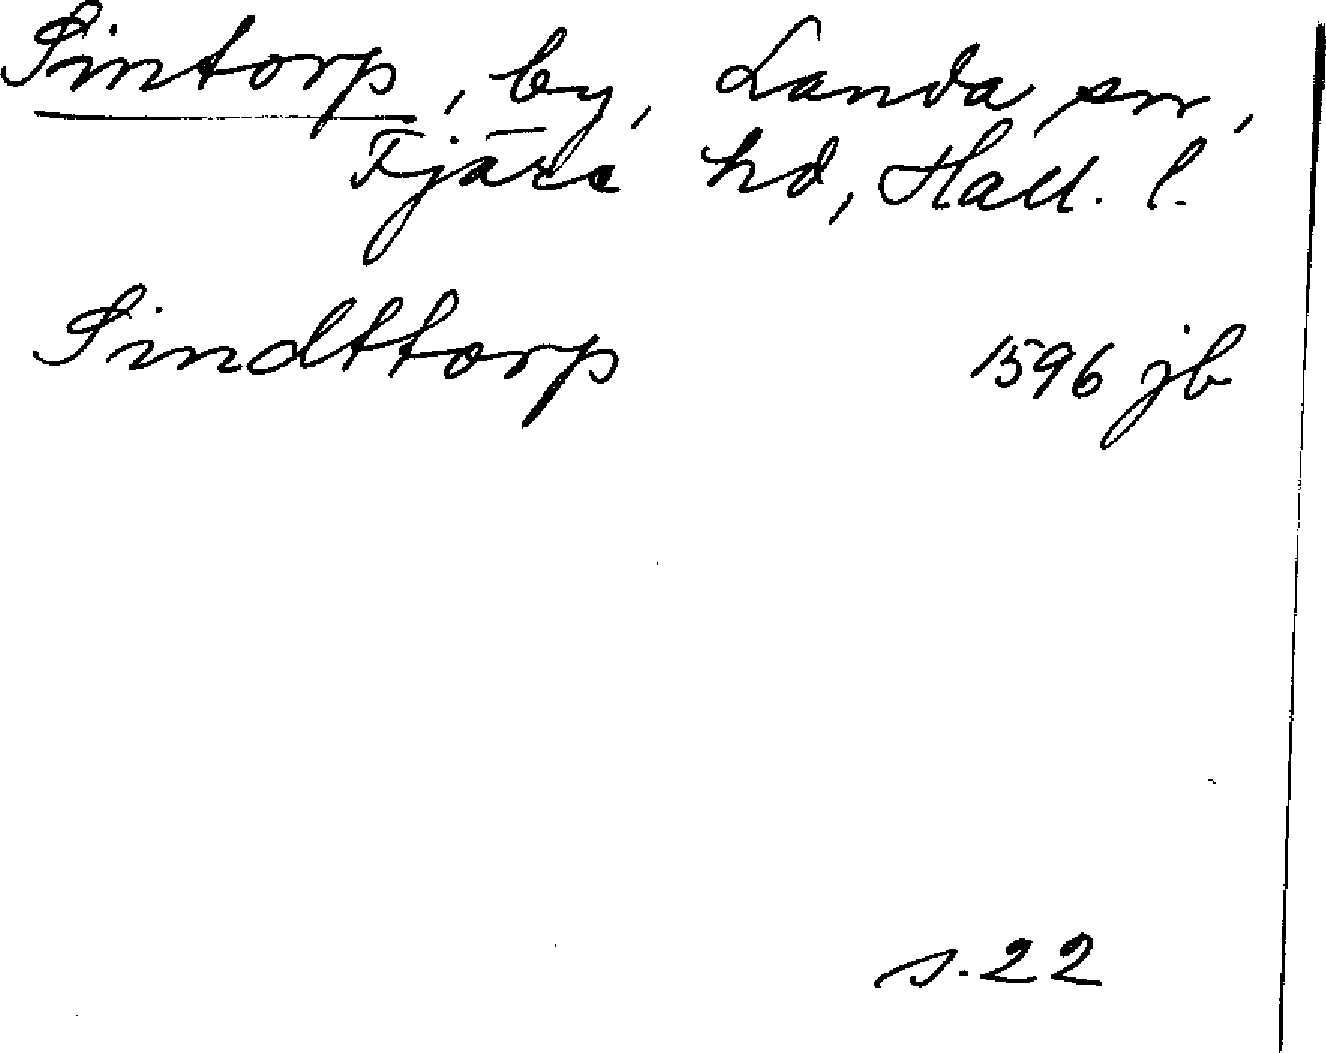 Sintorp, by, Landa sn,
Fjäre hd, Hall. l.
Sindttorp 1596 jb
s. 22